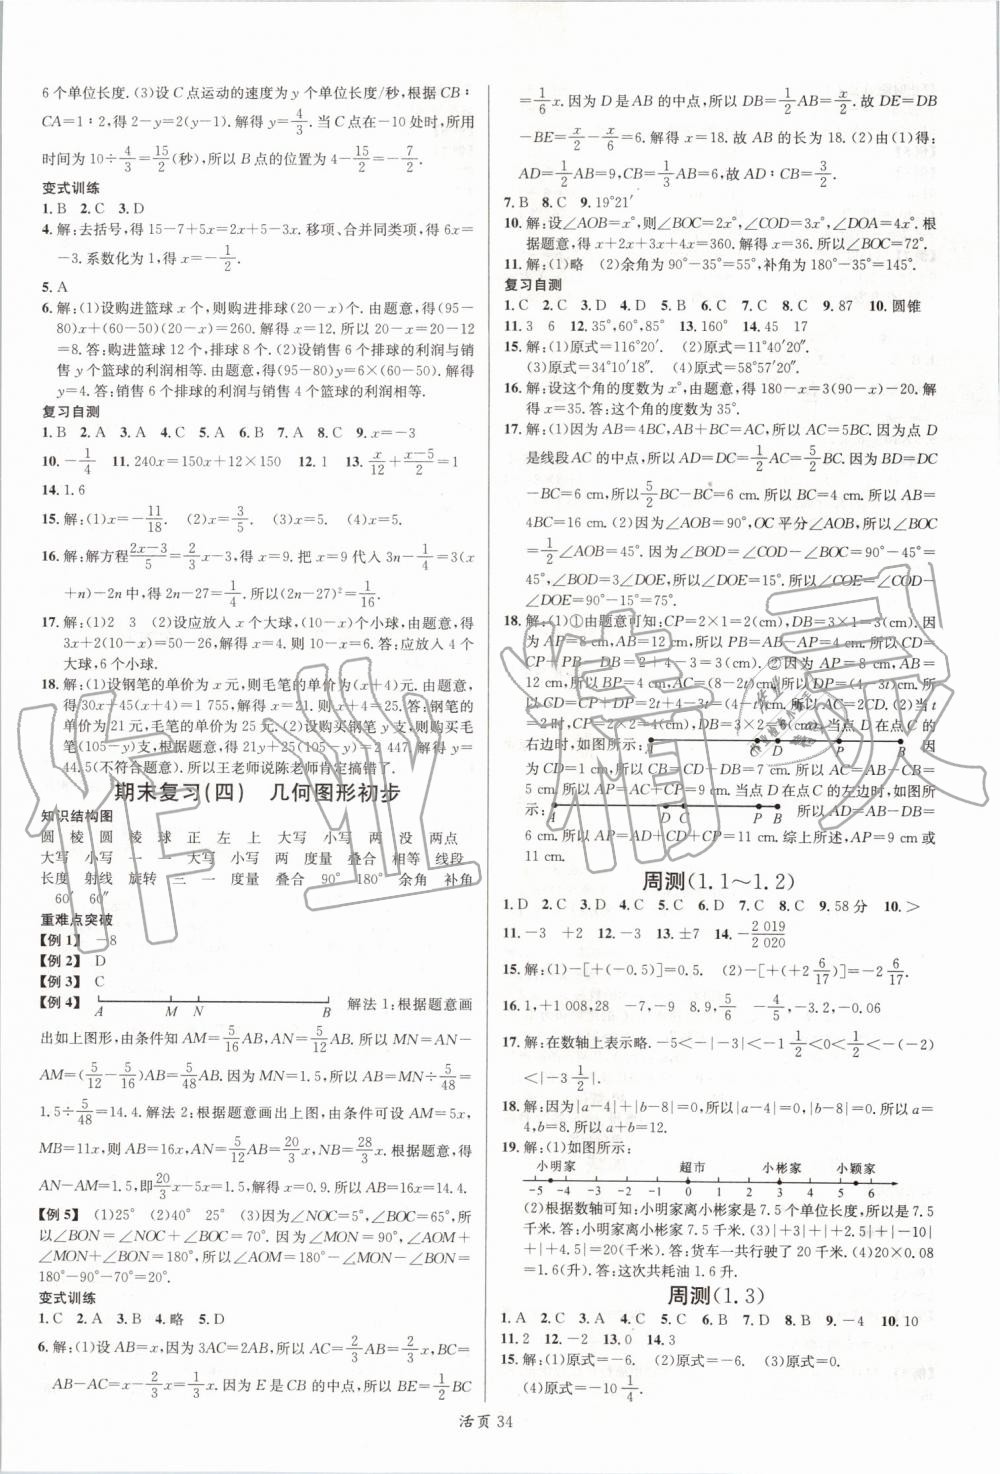 6个单位长度.(3)设C点运动的速度为y个单位长度/秒,根据CB∶
CA=1∶2,得2-y=2(y-1).解得y=4/3.当C点在-10处时,所用
时间为10÷4/3=15/2(秒),所以B点的位置为4-15/2=-7/2.
变式训练
1.B 2.C 3.D
4.解:去括号,得15-7+5x=2x+5-3x.移项、合并同类项,得6x=
-3.系数化为1,得x=-1/2.
5.A
6.解:(1)设购进篮球x个,则购进排球(20-x)个.由题意,得(95-
80)x+(60-50)(20-x)=260.解得x=12.所以20-x=20-12
=8.答:购进篮球12个,排球8个.(2)设销售6个排球的利润与销售
y个篮球的利润相等.由题意,得(95-80)y=6×(60-50).解得
y=4.答:销售6个排球的利润与销售4个篮球的利润相等.
复习自测
1.B 2.A 3.A 4.C 5.A 6.B 7.A 8.C 9.x=-3
10.-1/4 11.240x=150x+12×150 12.1 13.x/12+(x-5)/2=1
14.1.6
15.解:(1)x=-11/18. (2)x=3/5. (3)x=5. (4)x=5.
16.解:解方程(2x-3)/5=2/3x-3,得x=9.把x=9代入3n-1/4=3(x
+n)-2n中,得2n-27=1/4.所以(2n-27)²=1/16.
17.解:(1)2 3 (2)设应放入x个大球,(10-x)个小球,由题意,得
3x+2(10-x)=50-26.解得x=4.则10-x=6.答:应放入4个
大球,6个小球.
18.解:(1)设钢笔的单价为x元,则毛笔的单价为(x+4)元.由题意,
得30x+45(x+4)=1 755,解得x=21.则x+4=25.答:钢笔的
单价为21元,毛笔的单价为25元.(2)设购买钢笔y支,则购买毛
笔(105-y)支,根据题意,得21y+25(105-y)=2 447.解得y=
44.5(不符合题意).所以王老师说陈老师肯定搞错了.
期末复习(四) 几何图形初步
知识结构图
圆 棱 圆 棱 球 正 左 上 大写 小写 两 没 两点
大写 小写 一 一 大写 小写 两 度量 叠合 相等 线段
长度 射线 旋转 三 一 度量 叠合 90° 180° 余角 补角
60′ 60″
重难点突破
【例1】 -8
【例2】 D
【例3】 C
【例4】 A M N B 解法1:根据题意画
出如上图形,由条件知AM=5/16AB,AN=5/12AB.所以MN=AN-
AM=(5/12-5/16)AB=5/48AB.因为MN=1.5,所以AB=MN÷5/48=
1.5÷5/48=14.4.解法2:根据题意画出上图,由条件可设AM=5x,
MB=11x,所以AB=16x,AN=5/12AB=20/3x,NB=28/3x.根据题意,得
AN-AM=1.5,即20/3x-5x=1.5.解得x=0.9.所以AB=16x=14.4.
【例5】 (1)25° (2)40° 25° (3)因为∠NOC=5°,∠BOC=65°,所
以∠BON=∠NOC+∠BOC=70°.因为∠MON=90°,∠AOM+
∠MON+∠BON=180°,所以∠AOM=180°-∠MON-∠BON=
180°-90°-70°=20°.
变式训练
1.C 2.A 3.B 4.略 5.D
6.解:(1)设AB=x,因为3AC=2AB,所以AC=2/3AB=2/3x,BC=
AB-AC=x-2/3x=1/3x.因为E是CB的中点,所以BE=1/2BC
=1/6x.因为D是AB的中点,所以DB=1/2AB=x/2.故DE=DB
-BE=x/2-x/6=6.解得x=18.故AB的长为18.(2)由(1)得:
AD=1/2AB=9,CB=1/3AB=6,故AD∶CB=3/2.
7.B 8.C 9.19°21′
10.解:设∠AOB=x°,则∠BOC=2x°,∠COD=3x°,∠DOA=4x°.根
据题意,得x+2x+3x+4x=360.解得x=36.所以∠BOC=72°.
11.解:(1)略 (2)余角为90°-35°=55°,补角为180°-35°=145°.
复习自测
1.C 2.C 3.D 4.D 5.B 6.C 7.C 8.C 9.87 10.圆锥
11.3 6 12.35°,60°,85° 13.160° 14.45 17
15.解:(1)原式=116°20′. (2)原式=11°40′20″.
(3)原式=34°10′18″. (4)原式=58°57′20″.
16.解:设这个角的度数为x°,由题意,得180-x=3(90-x)-20.解
得x=35.答:这个角的度数为35°.
17.解:(1)因为AB=4BC,AB+BC=AC,所以AC=5BC.因为点D
是线段AC的中点,所以AD=DC=1/2AC=5/2BC.因为BD=DC
-BC=6 cm,所以5/2BC-BC=6 cm,所以BC=4 cm,所以AB=
4BC=16 cm.(2)因为∠AOB=90°,OC平分∠AOB,所以∠BOC
=1/2∠AOB=45°.因为∠BOD=∠COD-∠BOC=90°-45°=
45°,∠BOD=3∠DOE,所以∠DOE=15°.所以∠COE=∠COD-
∠DOE=90°-15°=75°.
18.解:(1)①由题意可知:CP=2×1=2(cm),DB=3×1=3(cm).因
为AP=8 cm,AB=12 cm,所以PB=AB-AP=4 cm.所以CD=
CP+PB-DB=2+4-3=3(cm).②因为AP=8 cm,AB=12
cm,所以BP=4 cm,AC=(8-2t)cm.所以DP=(4-3t)cm.所以
CD=CP+DP=2t+4-3t=(4-t)cm.所以AC=2CD.(2)当t
=2时,CP=2×2=4(cm),DB=3×2=6(cm).当点D在点C的
右边时,如图所示: A C D P B 因
为CD=1 cm,所以CB=CD+DB=7 cm.所以AC=AB-CB=5
cm.所以AP=AC+CP=9 cm.当点D在点C的左边时,如图所
示: A D C P B 所以AD=AB-DB=
6 cm.所以AP=AD+CD+CP=11 cm.综上所述,AP=9 cm或
11 cm.
周测(1.1～1.2)
1.D 2.C 3.D 4.C 5.C 6.B 7.C 8.C 9.58分 10.>
11.-3 +2 12.-3 13.±7 14.-2 019/2 020
15.解:(1)-[+(-0.5)]=0.5. (2)-[+(+2 6/17)]=-2 6/17.
16.1,+1 008,28 -7,-9 8.9,5/6 -3/4,-3.2,-0.06
17.解:在数轴上表示略.-5<-|-3|<-1 1/2<0<1/2<-(-2)
<|-3 1/2|.
18.解:因为|a-4|+|b-8|=0,所以|a-4|=0,|b-8|=0.所以a=
4,b=8.所以a+b=12.
19.解:(1)如图所示:
小明家 超市 小彬家 小颖家
-5 -4 -3 -2 -1 0 1 2 3 4 5 6
(2)根据数轴可知:小明家离小彬家是7.5个单位长度,所以是7.5
千米.答:小明家离小彬家7.5千米.(3)|+3|+|+2.5|+|-10|
+|+4.5|=20(千米).答:货车一共行驶了20千米.(4)20×0.08
=1.6(升).答:这次共耗油1.6升.
周测(1.3)
1.A 2.C 3.A 4.C 5.C 6.B 7.D 8.B 9.-4 10.10
11.2 12.-2 13.0 14.3
15.解:(1)原式=-6. (2)原式=-6. (3)原式=0.
(4)原式=-10 1/4.
活页 34
作业精灵